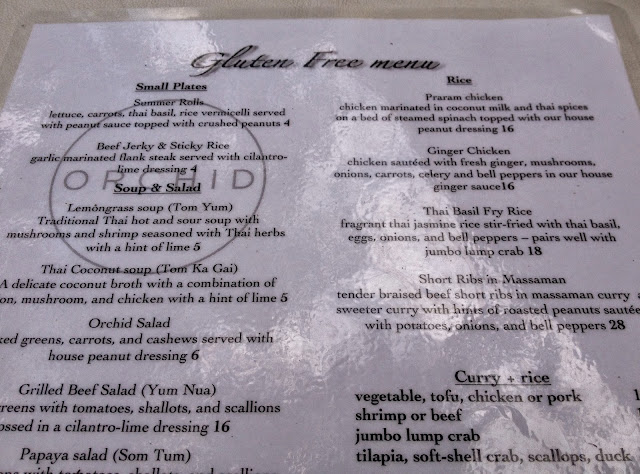 Gluten Free menu
Small Plates
Summer Rolls
lettuce, carrots, thai basil, rice vermicelli served
with peanut sauce topped with crushed peanuts 4
Beef Jerky & Sticky Rice
garlic marinated flank steak served with cilantro-
lime dressing 4
ORCHID
Soup & Salad
Lemongrass soup (Tom Yum)
Traditional Thai hot and sour soup with
mushrooms and shrimp seasoned with Thai herbs
with a hint of lime 5
Thai Coconut soup (Tom Ka Gai)
A delicate coconut broth with a combination of
on, mushroom, and chicken with a hint of lime 5
Orchid Salad
ked greens, carrots, and cashews served with
house peanut dressing 6
Grilled Beef Salad (Yum Nua)
greens with tomatoes, shallots, and scallions
ossed in a cilantro-lime dressing 16
Papaya salad (Som Tum)
Rice
Praram chicken
chicken marinated in coconut milk and thai spices
on a bed of steamed spinach topped with our house
peanut dressing 16
Ginger Chicken
chicken sautéed with fresh ginger, mushrooms,
onions, carrots, celery and bell peppers in our house
ginger sauce16
Thai Basil Fry Rice
fragrant thai jasmine rice stir-fried with thai basil,
eggs, onions, and bell peppers – pairs well with
jumbo lump crab 18
Short Ribs in Massaman
tender braised beef short ribs in massaman curry a
sweeter curry with hints of roasted peanuts sautée
with potatoes, onions, and bell peppers 28
Curry + rice
vegetable, tofu, chicken or pork 1
shrimp or beef
jumbo lump crab
tilapia, soft-shell crab, scallops, duck,